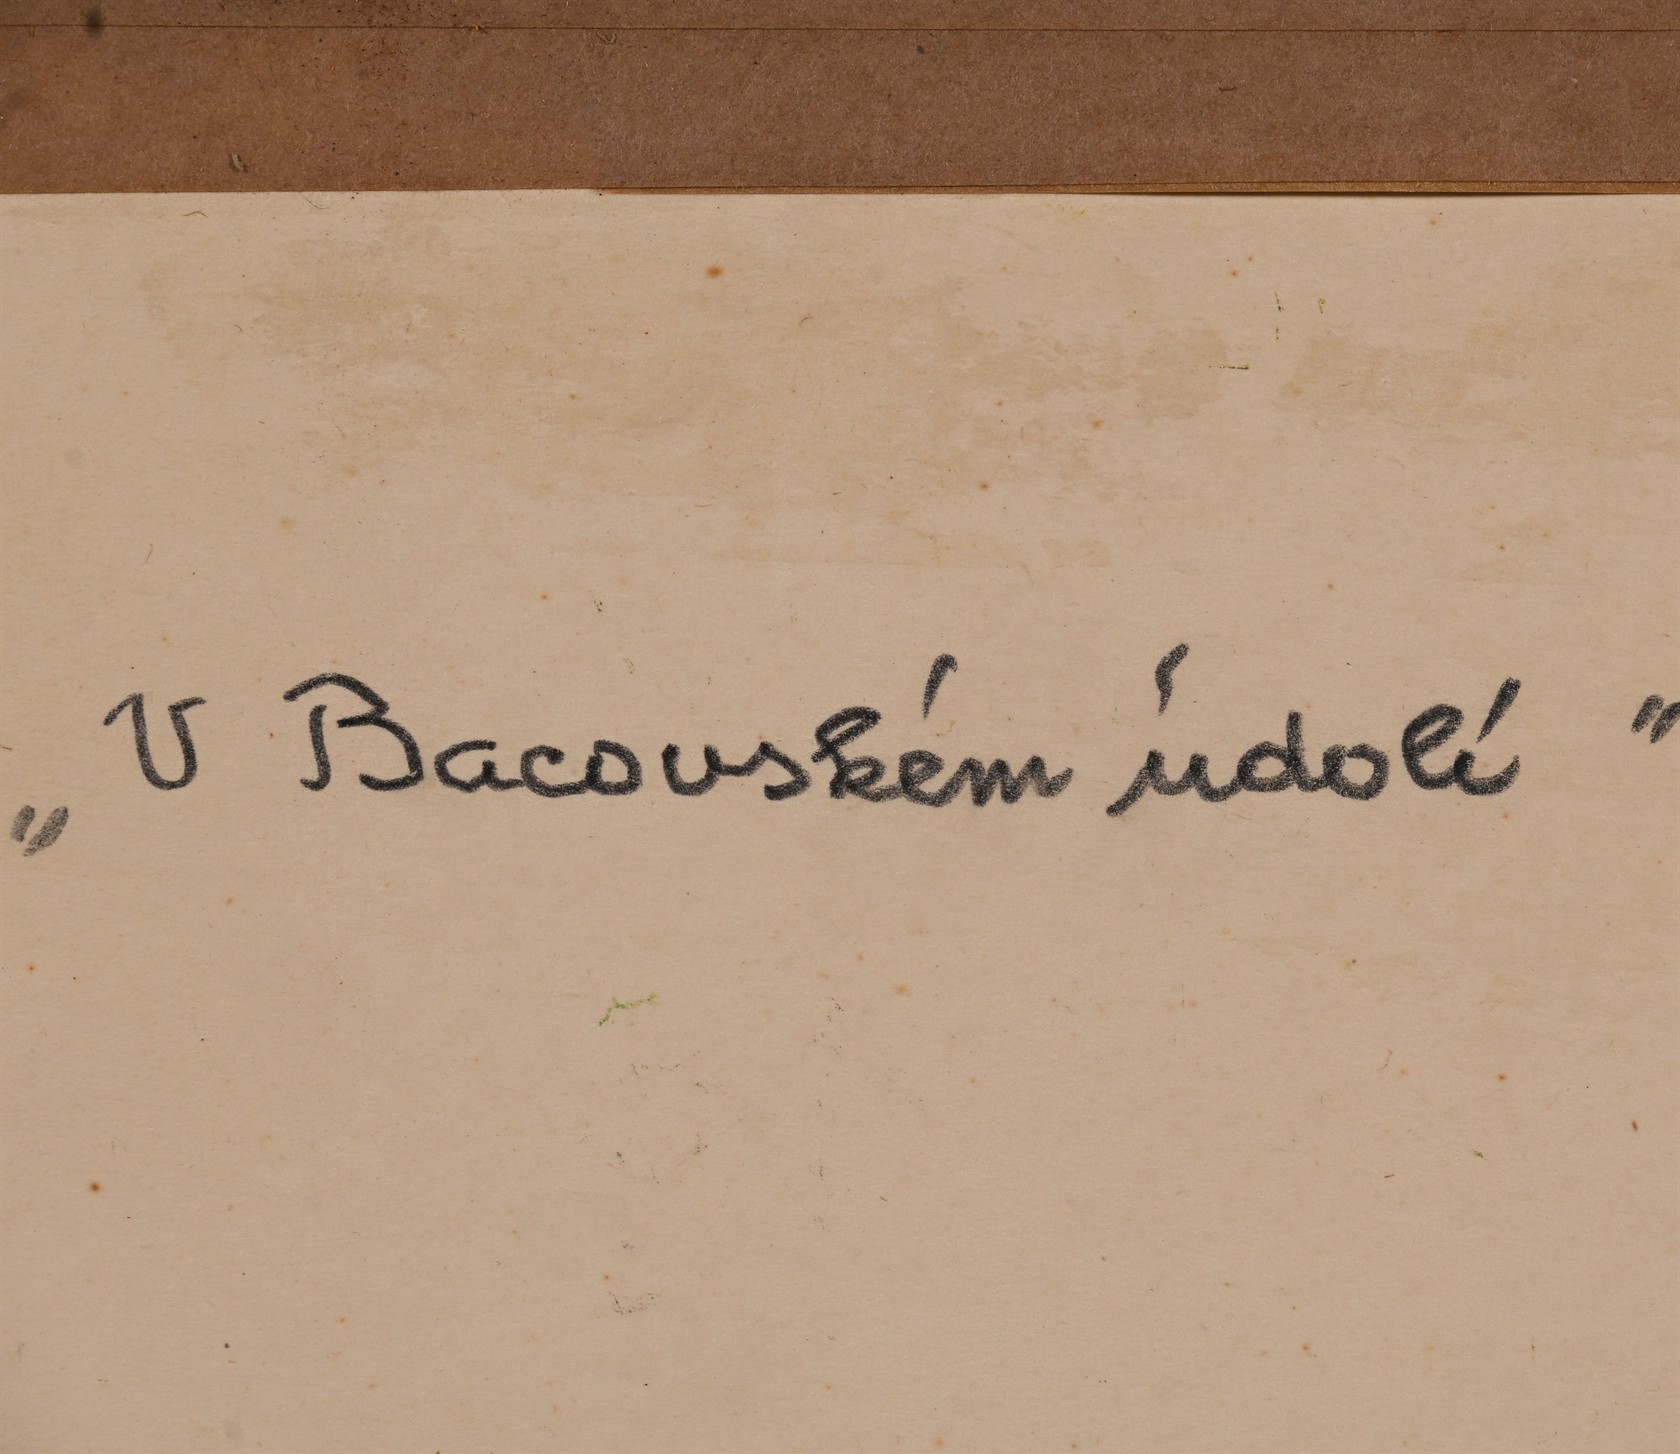 „V Bacovském údolí”